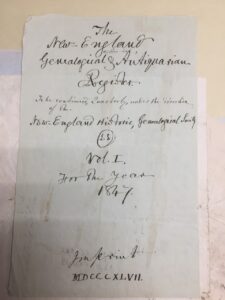 The
New-England
Genealogical & Antiquarian
Register.
To be continued Quarterly, under the direction
of the
New-England Historic, Genealogical Society
Vol. I.
For the Year
1847
Imprint
MDCCCXLVII.